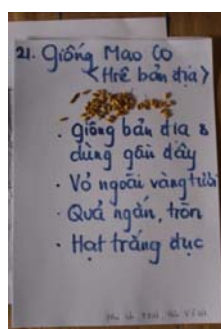 21. Giống Mao Co
<Hrê bản địa>
. giống bản địa &
dùng gần đây
. Vỏ ngoài vàng
. Quả ngắn, tròn
. Hạt trắng đục